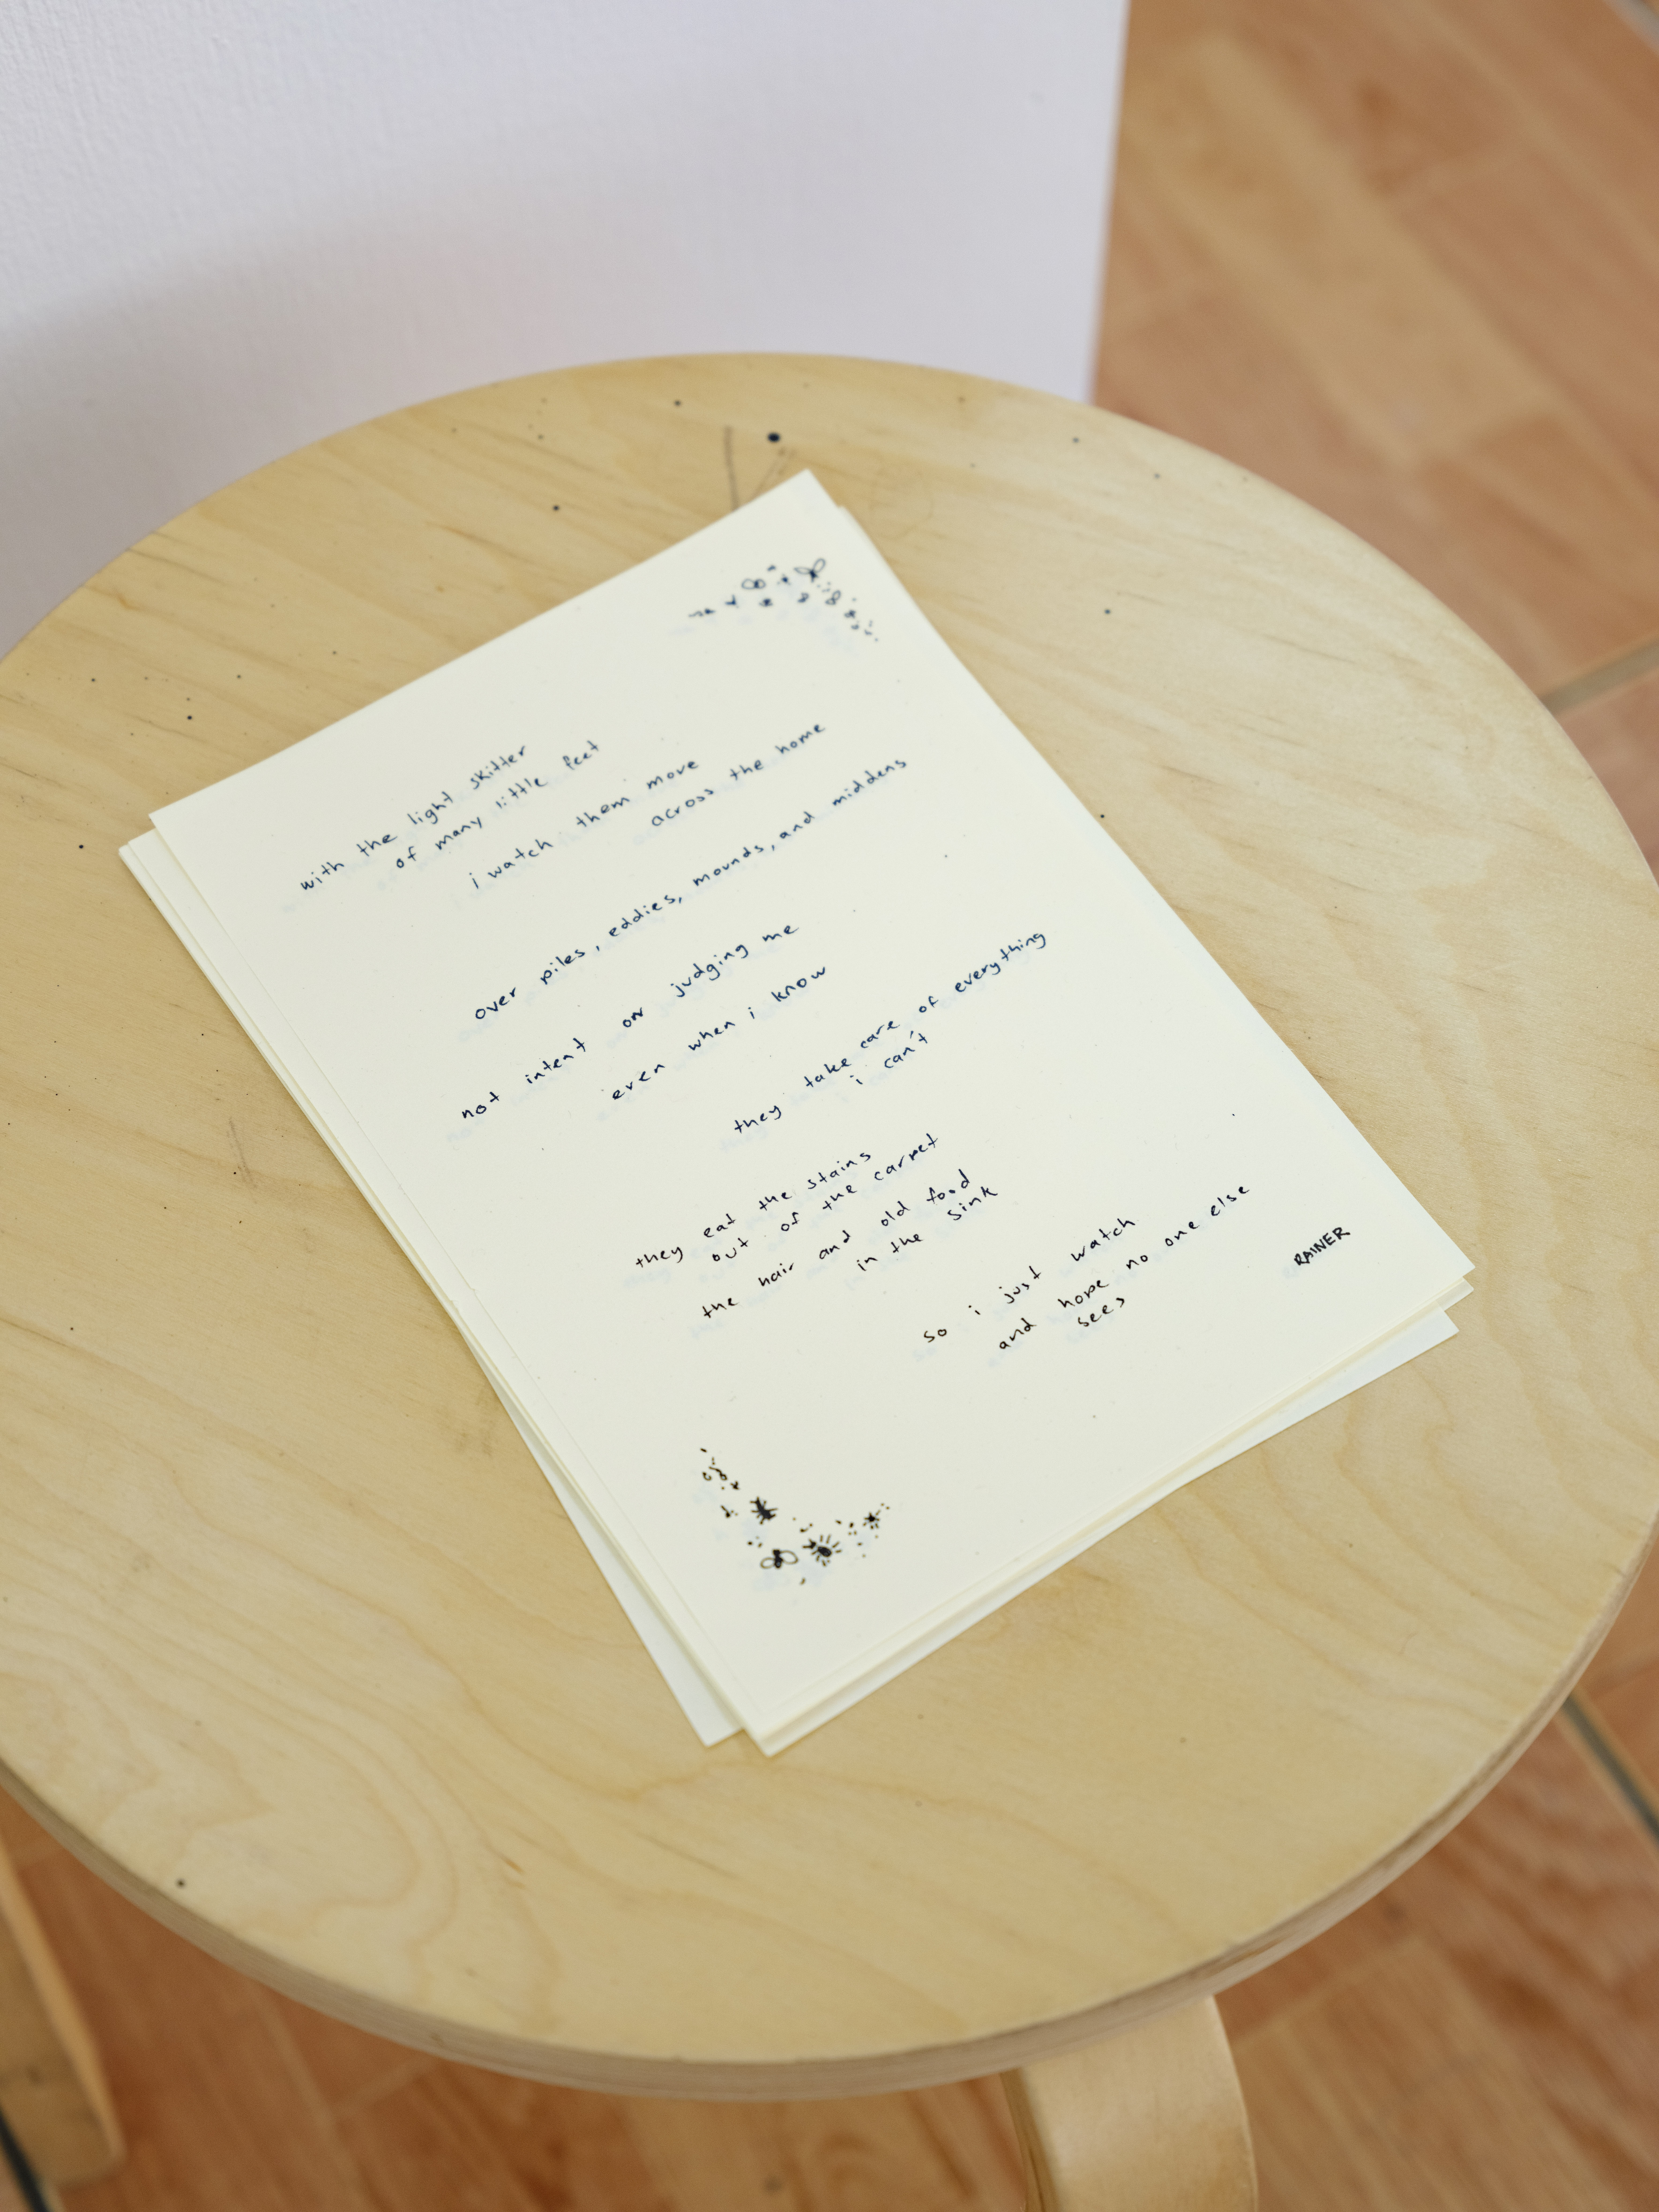 with the light skitter
of many little feet
i watch them move
across the home
over piles, eddies, mounds, and middens
not intent on judging me
even when i know
they take care of everything
i can't
they eat the stains
out of the carpet
the hair and old food
in the sink
so i just watch
and hope no one else
sees
RAINER